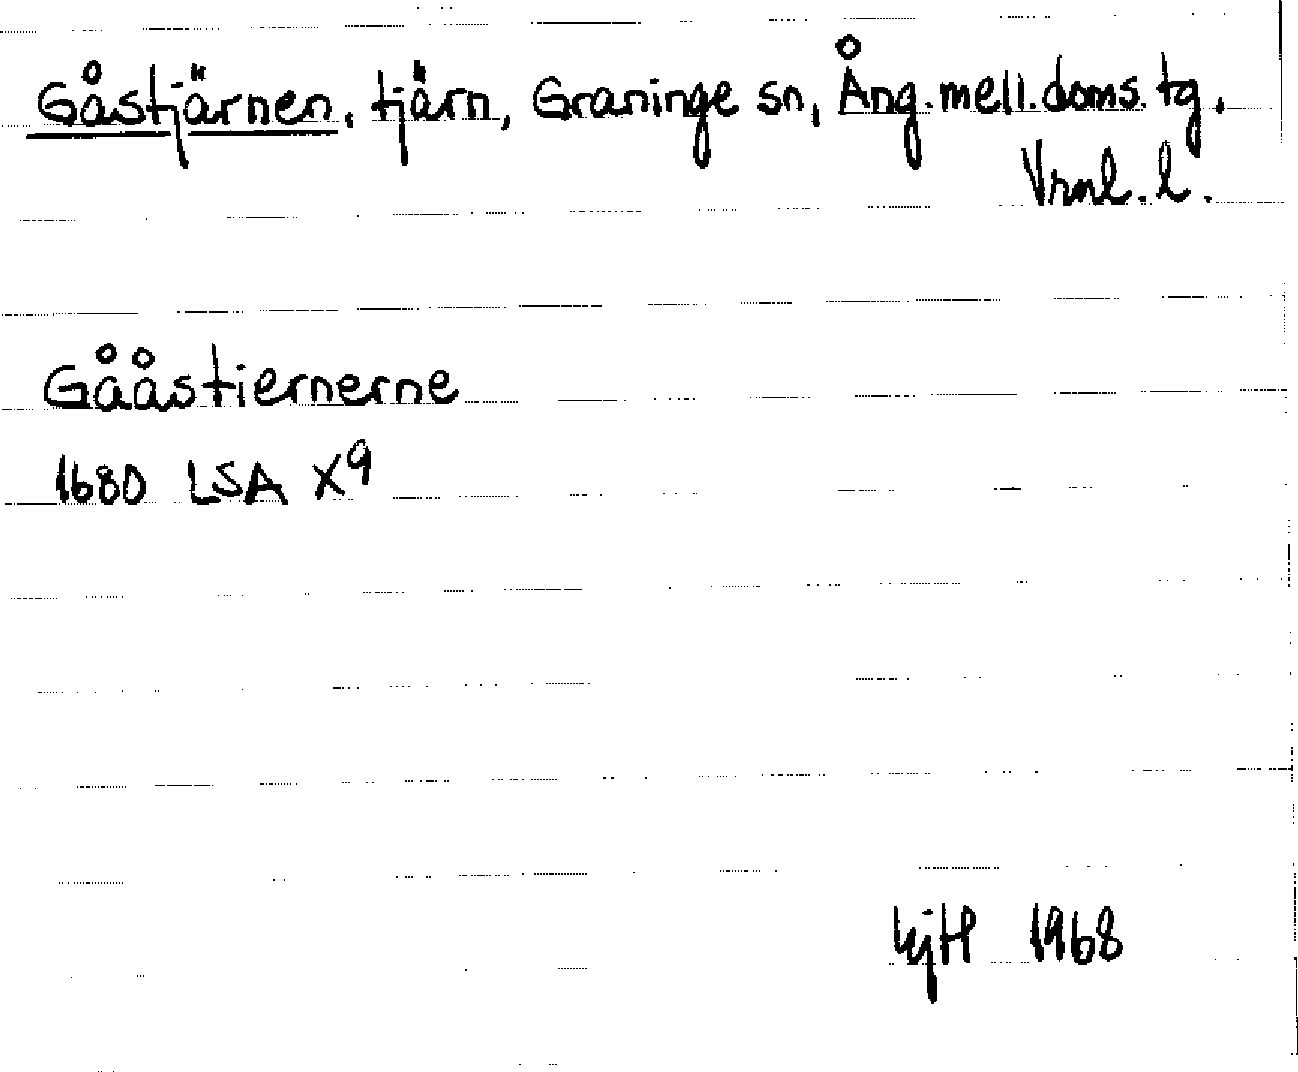 Gåstjärnen, tjärn, Graninge sn, Ång. mell. doms. tg.
Vrnl. l.
Gååstiernerne
1680 LSA X9
KjH 1968